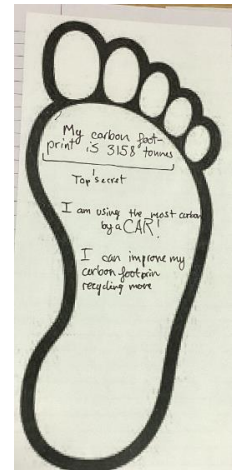 My carbon foot-
print is 3158 tonnes
Top secret
I am using the most carbon
by a CAR!
I can improve my
carbon footprin
recycling more